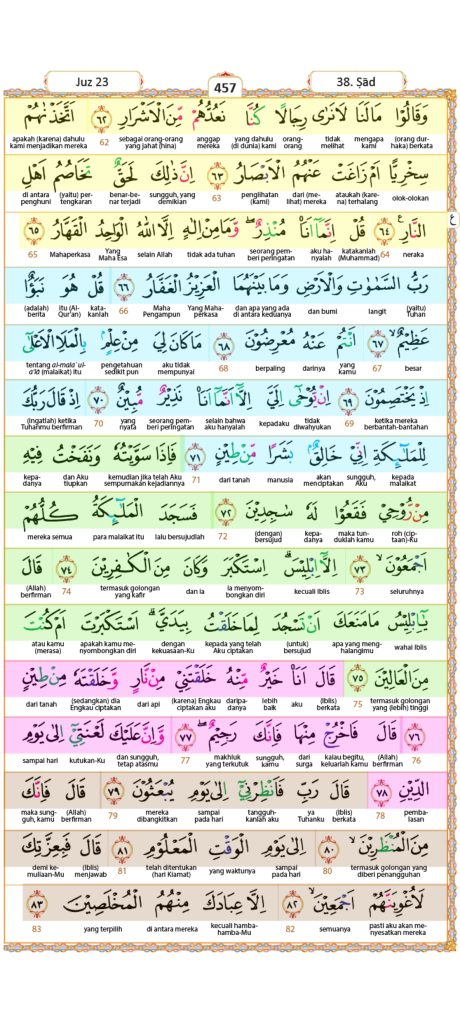 Juz 23
457
38. Ṣād
وَقَالُوْا مَا لَنَا لَا نَرٰى رِجَالًا كُنَّا نَعُدُّهُمْ مِّنَ الْاَشْرَارِ ۝٦٢ اَتَّخَذْنٰهُمْ
(orang dur-haka) berkata mengapa kami tidak melihat orang-orang yang dahulu (di dunia) kami anggap mereka sebagai orang-orang yang jahat (hina) 62 apakah (karena) dahulu kami menjadikan mereka
سِخْرِيًّا اَمْ زَاغَتْ عَنْهُمُ الْاَبْصَارُ ۝٦٣ اِنَّ ذٰلِكَ لَحَقٌّ تَخَاصُمُ اَهْلِ
olok-olokan ataukah (kare-na) terhalang dari (me-lihat) mereka penglihatan (kami) 63 sungguh, yang demikian benar-be-nar terjadi (yaitu) per-tengkaran di antara penghuni
النَّارِ ۝٦٤ ࣖ قُلْ اِنَّمَآ اَنَا۠ مُنْذِرٌ ۖوَّمَا مِنْ اِلٰهٍ اِلَّا اللّٰهُ الْوَاحِدُ الْقَهَّارُ ۝٦٥
ع
neraka 64 katakanlah (Muhammad) aku ha-nyalah seorang pem-beri peringatan tidak ada tuhan selain Allah Yang Maha Esa Mahaperkasa 65
رَبُّ السَّمٰوٰتِ وَالْاَرْضِ وَمَا بَيْنَهُمَا الْعَزِيْزُ الْغَفَّارُ ۝٦٦ قُلْ هُوَ نَبَؤٌا
(yaitu) Tuhan langit dan bumi dan apa yang ada di antara keduanya Yang Maha-perkasa Maha Pengampun 66 kata-kanlah itu (Al-Qur'an) (adalah) berita
عَظِيْمٌۙ ۝٦٧ اَنْتُمْ عَنْهُ مُعْرِضُوْنَ ۝٦٨ مَا كَانَ لِيَ مِنْ عِلْمٍۢ بِالْمَلَاِ الْاَعْلٰٓى
besar 67 yang kamu darinya berpaling 68 aku tidak mempunyai pengetahuan sedikit pun tentang al-mala'ul-a'lā (malaikat) itu
اِذْ يَخْتَصِمُوْنَ ۝٦٩ اِنْ يُّوْحٰىٓ اِلَيَّ اِلَّآ اَنَّمَآ اَنَا۠ نَذِيْرٌ مُّبِيْنٌ ۝٧٠ اِذْ قَالَ رَبُّكَ
ketika mereka berbantah-bantahan 69 tidak diwahyukan kepadaku selain bahwa aku hanyalah seorang pem-beri peringatan yang nyata 70 (ingatlah) ketika Tuhanmu berfirman
لِلْمَلٰۤىِٕكَةِ اِنِّيْ خَالِقٌۢ بَشَرًا مِّنْ طِيْنٍ ۝٧١ فَاِذَا سَوَّيْتُهٗ وَنَفَخْتُ فِيْهِ
kepada malaikat sungguh, Aku akan menciptakan manusia dari tanah 71 kemudian jika telah Aku sempurnakan kejadiannya dan Aku tiupkan kepa-danya
مِنْ رُّوْحِيْ فَقَعُوْا لَهٗ سٰجِدِيْنَ ۝٧٢ فَسَجَدَ الْمَلٰۤىِٕكَةُ كُلُّهُمْ
roh (cip-taan)-Ku maka tun-duklah kamu kepa-danya (dengan) bersujud 72 lalu bersujudlah para malaikat itu mereka semua
اَجْمَعُوْنَۙ ۝٧٣ اِلَّآ اِبْلِيْسَۗ اِسْتَكْبَرَ وَكَانَ مِنَ الْكٰفِرِيْنَ ۝٧٤ قَالَ
seluruhnya 73 kecuali Iblis ia menyom-bongkan diri dan ia termasuk golongan yang kafir 74 (Allah) berfirman
يٰٓاِبْلِيْسُ مَا مَنَعَكَ اَنْ تَسْجُدَ لِمَا خَلَقْتُ بِيَدَيَّ ۗ اَسْتَكْبَرْتَ اَمْ كُنْتَ
wahai Iblis apa yang meng-halangimu (untuk) bersujud kepada yang telah Aku ciptakan dengan kekuasaan-Ku apakah kamu me-nyombongkan diri atau kamu (merasa)
مِنَ الْعَالِيْنَ ۝٧٥ قَالَ اَنَا۠ خَيْرٌ مِّنْهُ خَلَقْتَنِيْ مِنْ نَّارٍ وَّخَلَقْتَهٗ مِنْ طِيْنٍ
termasuk golongan yang (lebih) tinggi 75 (Iblis) berkata aku lebih baik daripa-danya (karena) Engkau ciptakan aku dari api (sedangkan) dia Engkau ciptakan dari tanah
۝٧٦ قَالَ فَاخْرُجْ مِنْهَا فَاِنَّكَ رَجِيْمٌۖ ۝٧٧ وَّاِنَّ عَلَيْكَ لَعْنَتِيْٓ اِلٰى يَوْمِ
76 (Allah) berfirman kalau begitu, keluarlah kamu dari surga sungguh, kamu makhluk yang terkutuk 77 dan sungguh, tetap atasmu kutukan-Ku sampai hari
الدِّيْنِ ۝٧٨ قَالَ رَبِّ فَاَنْظِرْنِيْٓ اِلٰى يَوْمِ يُبْعَثُوْنَ ۝٧٩ قَالَ فَاِنَّكَ
pemba-lasan 78 (Iblis) berkata ya Tuhanku tangguh-kanlah aku sampai pada hari mereka dibangkitkan 79 (Allah) berfirman maka sung-guh, kamu
مِنَ الْمُنْظَرِيْنَۙ ۝٨٠ اِلٰى يَوْمِ الْوَقْتِ الْمَعْلُوْمِ ۝٨١ قَالَ فَبِعِزَّتِكَ
termasuk golongan yang diberi penangguhan 80 sampai pada hari yang waktunya telah ditentukan (hari Kiamat) 81 (Iblis) menjawab demi ke-muliaan-Mu
لَاُغْوِيَنَّهُمْ اَجْمَعِيْنَۙ ۝٨٢ اِلَّا عِبَادَكَ مِنْهُمُ الْمُخْلَصِيْنَ ۝٨٣
pasti aku akan me-nyesatkan mereka semuanya 82 kecuali hamba-hamba-Mu di antara mereka yang terpilih 83